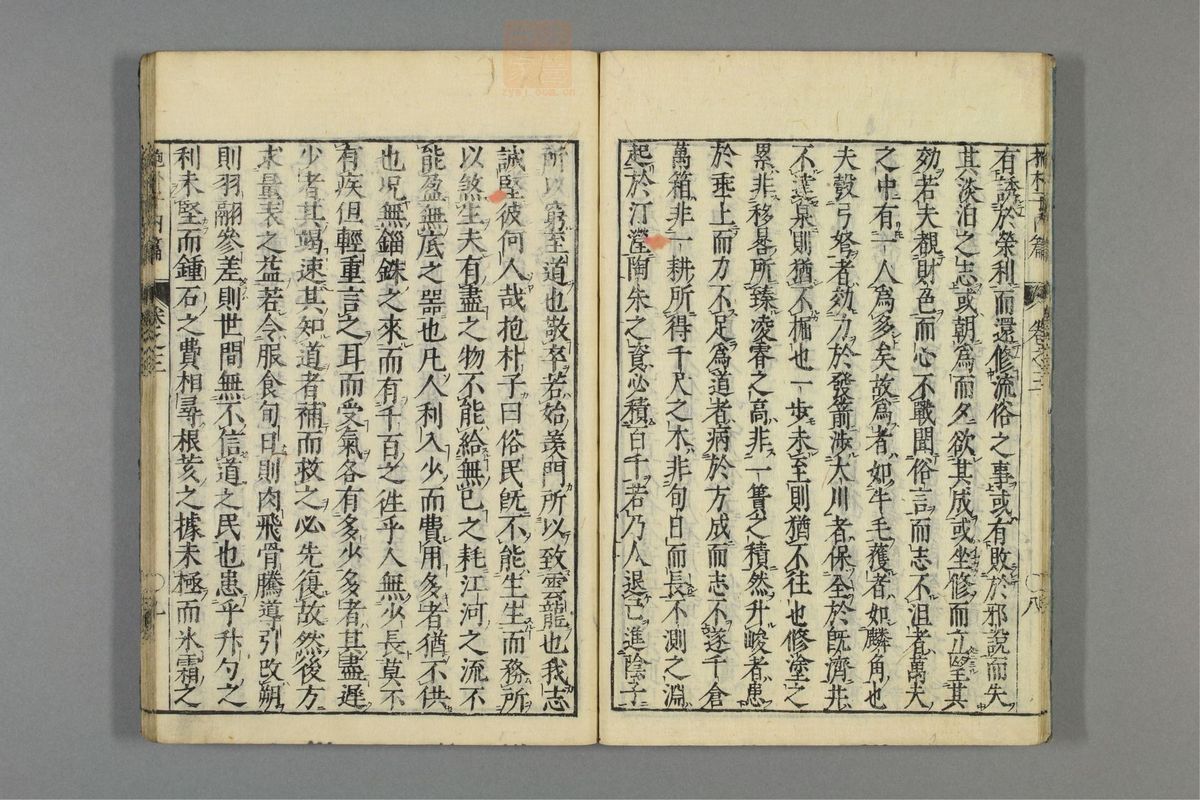 抱朴子內篇 卷之三 八
有誘於榮利而還修流俗之事或有敗於邪說而失
其淡泊之志或朝爲而夕欲其成或坐修而立望其
効若夫覩財色而心不戰聞俗言而志不沮者萬夫
之中有一人爲多矣故爲者如牛毛獲者如麟角也
夫彀弓弩者効力於發箭涉大川者保全於旣濟井
不達泉則猶不掘也一步未至則猶不往也修塗之
累非移晷所臻凌霄之高非一簣之積然升峻者患
於垂上而力不足爲道者病於方成而志不遂千倉
萬箱非一耕所得千尺之木非旬日而長不測之淵
起於汀瀅陶朱之資必積百千若乃人退己進陰子
所以窮至道也敬卒若始羡門所以致雲龍也我志
誠堅彼何人哉抱朴子曰俗民旣不能生生而務所
以煞生夫有盡之物不能給無已之耗江河之流不
能盈無底之器也凡人利入少而費用多者猶不供
也况無錙銖之來而有千百之徃乎人無少長莫不
有疾但輕重言之耳而受氣各有多少多者其盡遲
少者其竭速其知道者補而救之必先復故然後方
求量表之益若令服食旬日則肉飛骨騰導引改朔
則羽翮參差則世間無不信道之民也患乎升勺之
利未堅而鍾石之費相尋根荄之據未極而氷霜之
篇 卷之三
zysj.com.cn